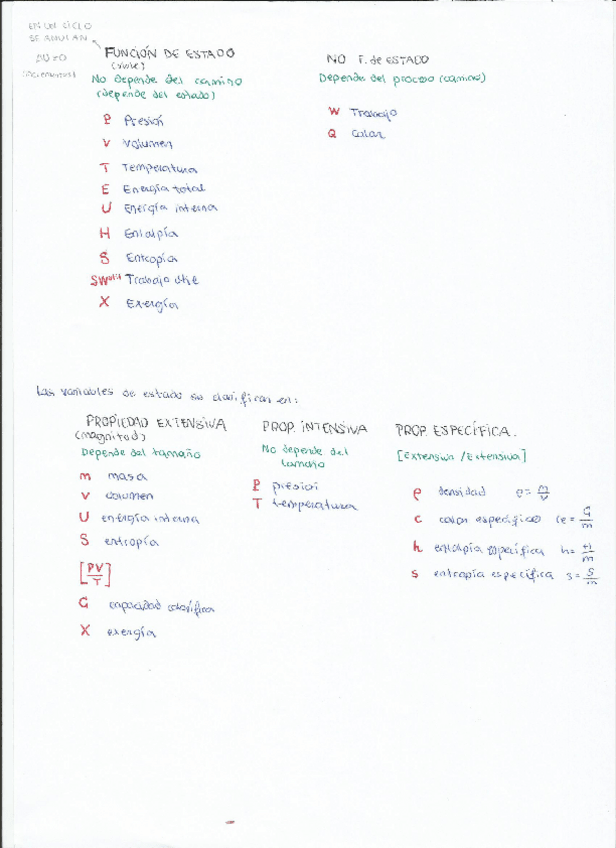 EN UN CICLO
SE ANULAN
ΔU=0
(incrementos)
FUNCIÓN DE ESTADO
No depende del camino
(depende del estado)
P Presión
V Volumen
T Temperatura
E Energía total
U Energía interna
H Entalpía
S Entropía
Trabajo útil
X Exergía
NO F. de ESTADO
Depende del proceso (camino)
W Trabajo
Q Calor
Las variables de estado se clasifican en:
PROPIEDAD EXTENSIVA
(magnitud)
Depende del tamaño
m masa
V volumen
U energía interna
S entropía
[PV/T]
C capacidad calorífica
X exergía
PROP. INTENSIVA
No depende del
tamaño
P presión
T temperatura
PROP. ESPECÍFICA.
[Extensiva/Extensiva]
ρ densidad ρ=m/V
c calor específico ce=C/m
h entalpía específica h=H/m
s entropía específica s=S/m